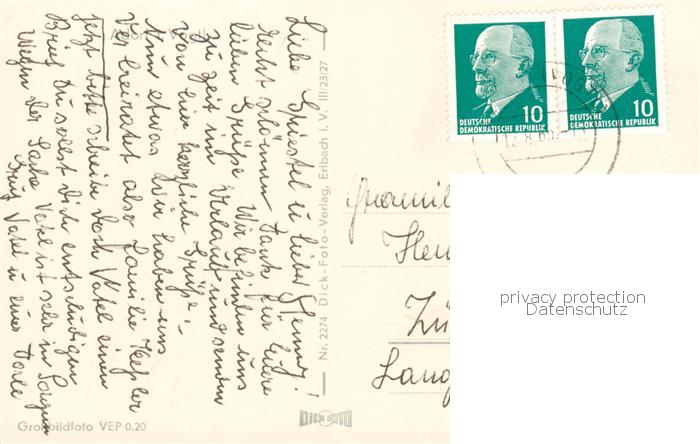 Liebe Christel u. lieber Henry!
Recht schönen Dank für Eure
lieben Grüße. Wir befinden uns
zu Zeit im Urlaub und senden
von hier herzliche Grüße!
Nun etwas wir haben uns
Verheiratet also Familie Keßler
Jetzt bitte schreibe doch Vatel einen
Brief Du sollst Dich entschuldigen
Wegen der Sache Vatel ist sehr in Sorgen
Gruß Vatel u. eure
Adorf Vogtl
Großbildfoto VEP 0.20
Nr. 2274 Dick-Foto-Verlag, Erlbach i. V. III 23/27
DICK FOTO
10
DEUTSCHE
DEMOKRATISCHE REPUBLIK
10
DEUTSCHE
DEMOKRATISCHE REPUBLIK
Familie
Hen
Zü
Lang
privacy protection
Datenschutz